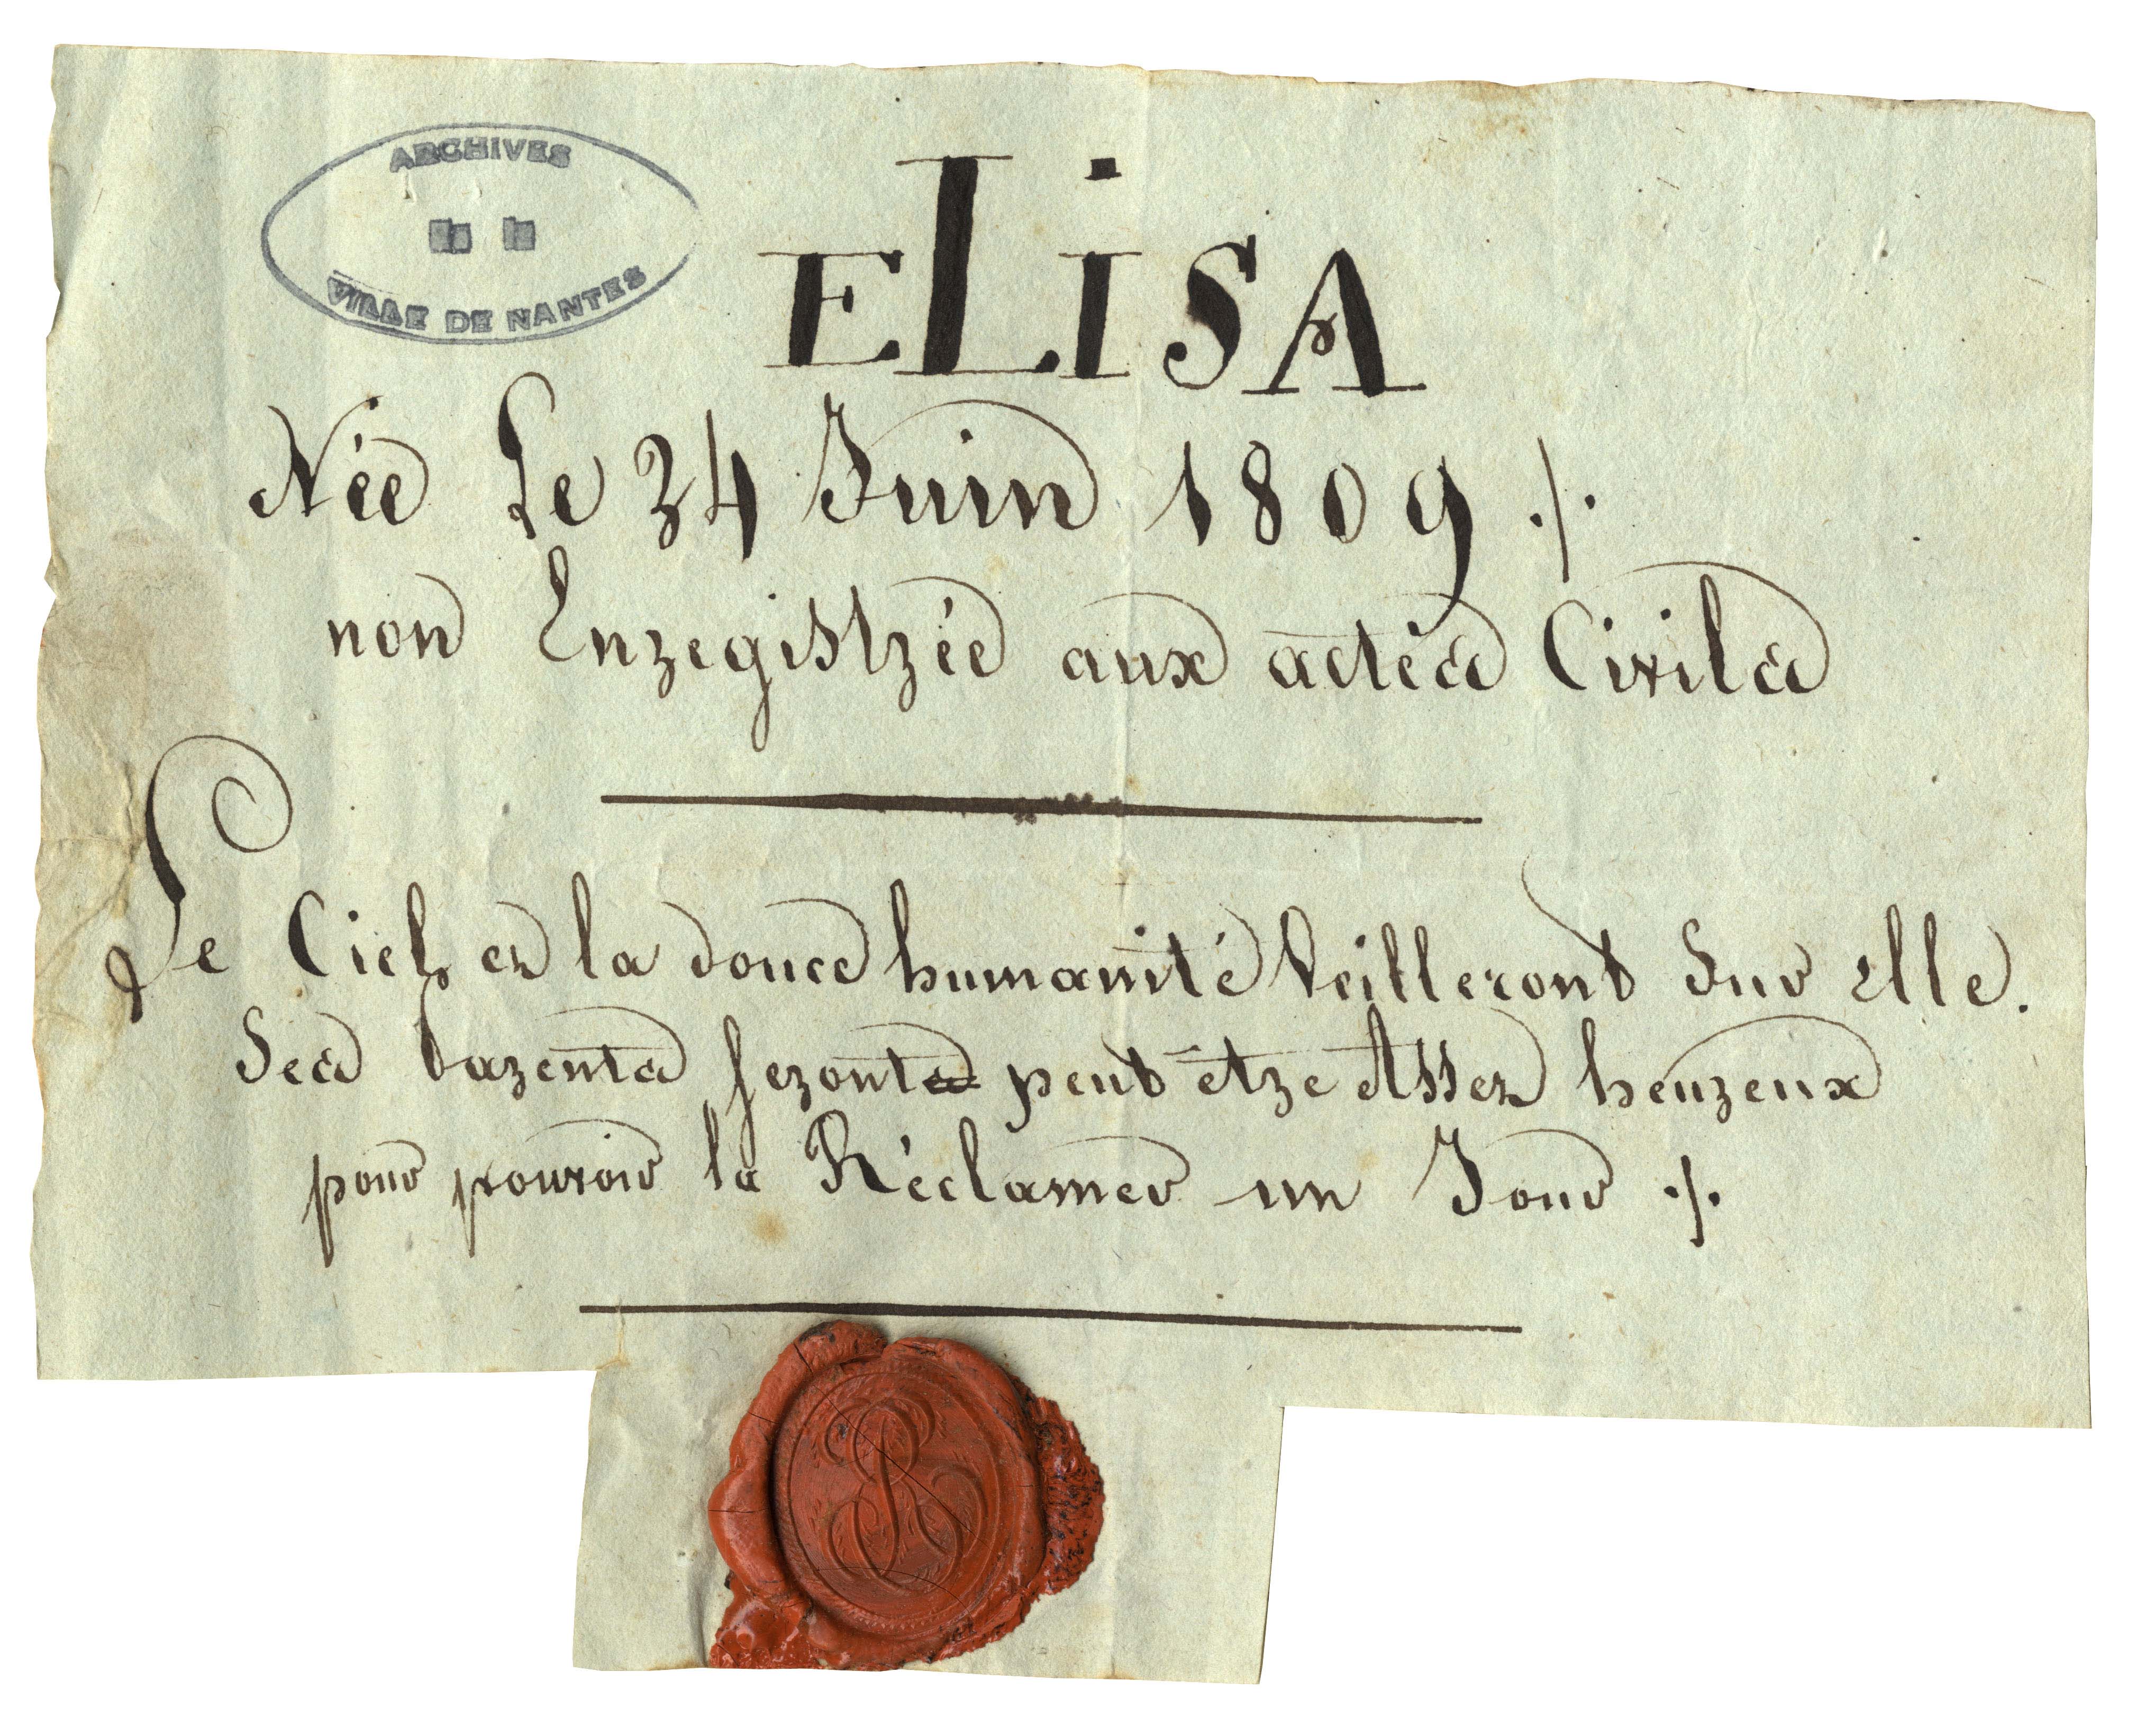 ARCHIVES
VILLE DE NANTES
ELiSA
Née Le 24 Juin 1809 ./.
non Enregistrée aux actes Civils
Le Ciel et la douce humanité Veilleront Sur elle.
Ses Parents seront peut être Assez heureux
pour pouvoir la Réclamer un Jour ./.